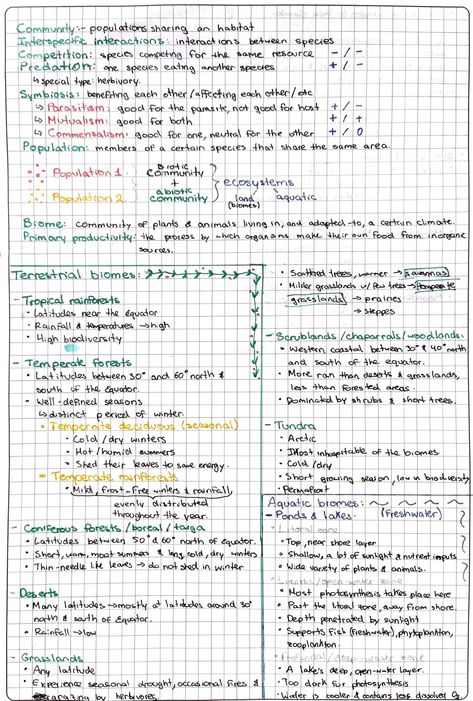 Community:- populations sharing an habitat
Interspecific interactions: interactions between species
Competition: species competing for the same resource - / -
Predation: one species eating another species + / -
↳ special type: herbivory.
Symbiosis: benefiting each other/affecting each other/etc
↳ Parasitism: good for the parasite, not good for host + / -
↳ Mutualism: good for both + / +
↳ Commensalism: good for one, neutral for the other + / 0
Population: members of a certain species that share the same area.
Population 1.
Population 2.
Biotic
community
+
abiotic
community
ecosystems
land
(biomes)
aquatic
Biome: community of plants & animals living in, and adapted-to, a certain climate.
Primary productivity: the process by which organisms make their own food from inorganic
sources.
Terrestrial biomes:
- Tropical rainforests
• Latitudes near the equator
• Rainfall & temperatures → high
• High biodiversity
- Temperate forests
• Latitudes between 30° and 60° north &
south of the Equator.
• Well-defined seasons
↳ distinct period of winter.
• Temperate deciduous (seasonal)
• Cold / dry winters
• Hot / humid summers
• Shed their leaves to save energy.
• Temperate rainforests
• Mild, frost-free winters & rainfall,
evenly distributed
throughout the year.
- Coniferous forests / boreal / taiga
• Latitudes between 50° & 60° north of equator.
• Short, warm, moist summers & long, cold, dry winters
• Thin-needle like leaves → do not shed in winter
- Deserts
• Many latitudes → mostly at latitudes around 30°
north & south of Equator.
• Rainfall → low
- Grasslands
• Any latitude
• Experience seasonal drought, occasional fires &
grazing by herbivores.
• Scattered trees, warmer → savannas
• Milder grasslands w/ few trees → temperate
grasslands → prairies
→ steppes
- Scrublands / chaparrals / woodlands:
• Western coastal between 30° & 40° north
and south of the equator.
• More rain than deserts & grasslands,
less than forested areas.
• Dominated by shrubs & short trees.
- Tundra
• Arctic
• Most inhospitable of the biomes
• Cold / dry
• Short growing season, low in biodiversity
• Permafrost
Aquatic biomes:
- Ponds & lakes: (freshwater)
zone
• Top, near shore layer
• Shallow, a lot of sunlight & nutrient inputs
• Wide variety of plants & animals.
/open-water zone
• Most photosynthesis takes place here
• Past the litoral zone, away from shore.
• Depth penetrated by sunlight
• Supports fish (freshwater), phytoplankton,
zooplankton.
/deep-water zone
• A lake's deep, open-water layer.
• Too dark for photosynthesis
• Water is cooler & contains less dissolved O₂